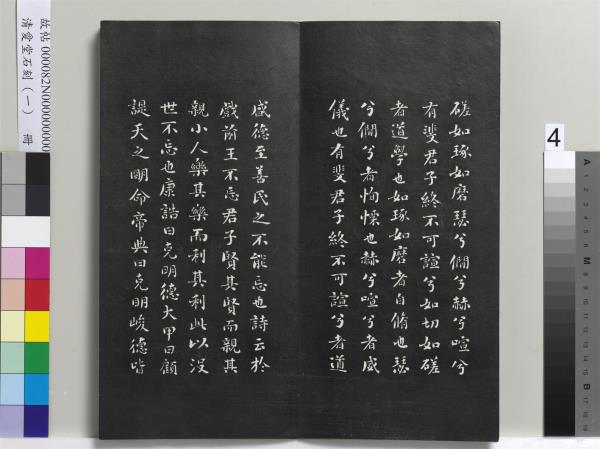 磋如琢如磨瑟兮僩兮赫兮喧兮
有斐君子終不可諠兮如切如磋
者道學也如琢如磨者自脩也瑟
兮僩兮者恂慄也赫兮喧兮者威
儀也有斐君子終不可諠兮者道
盛德至善民之不能忘也詩云於
戲前王不忘君子賢其賢而親其
親小人樂其樂而利其利此以沒
世不忘也康誥曰克明德大甲曰顧
諟天之明命帝典曰克明峻德皆
故帖 000082N000000000
清愛堂石刻（一） 冊
4
A
M
B